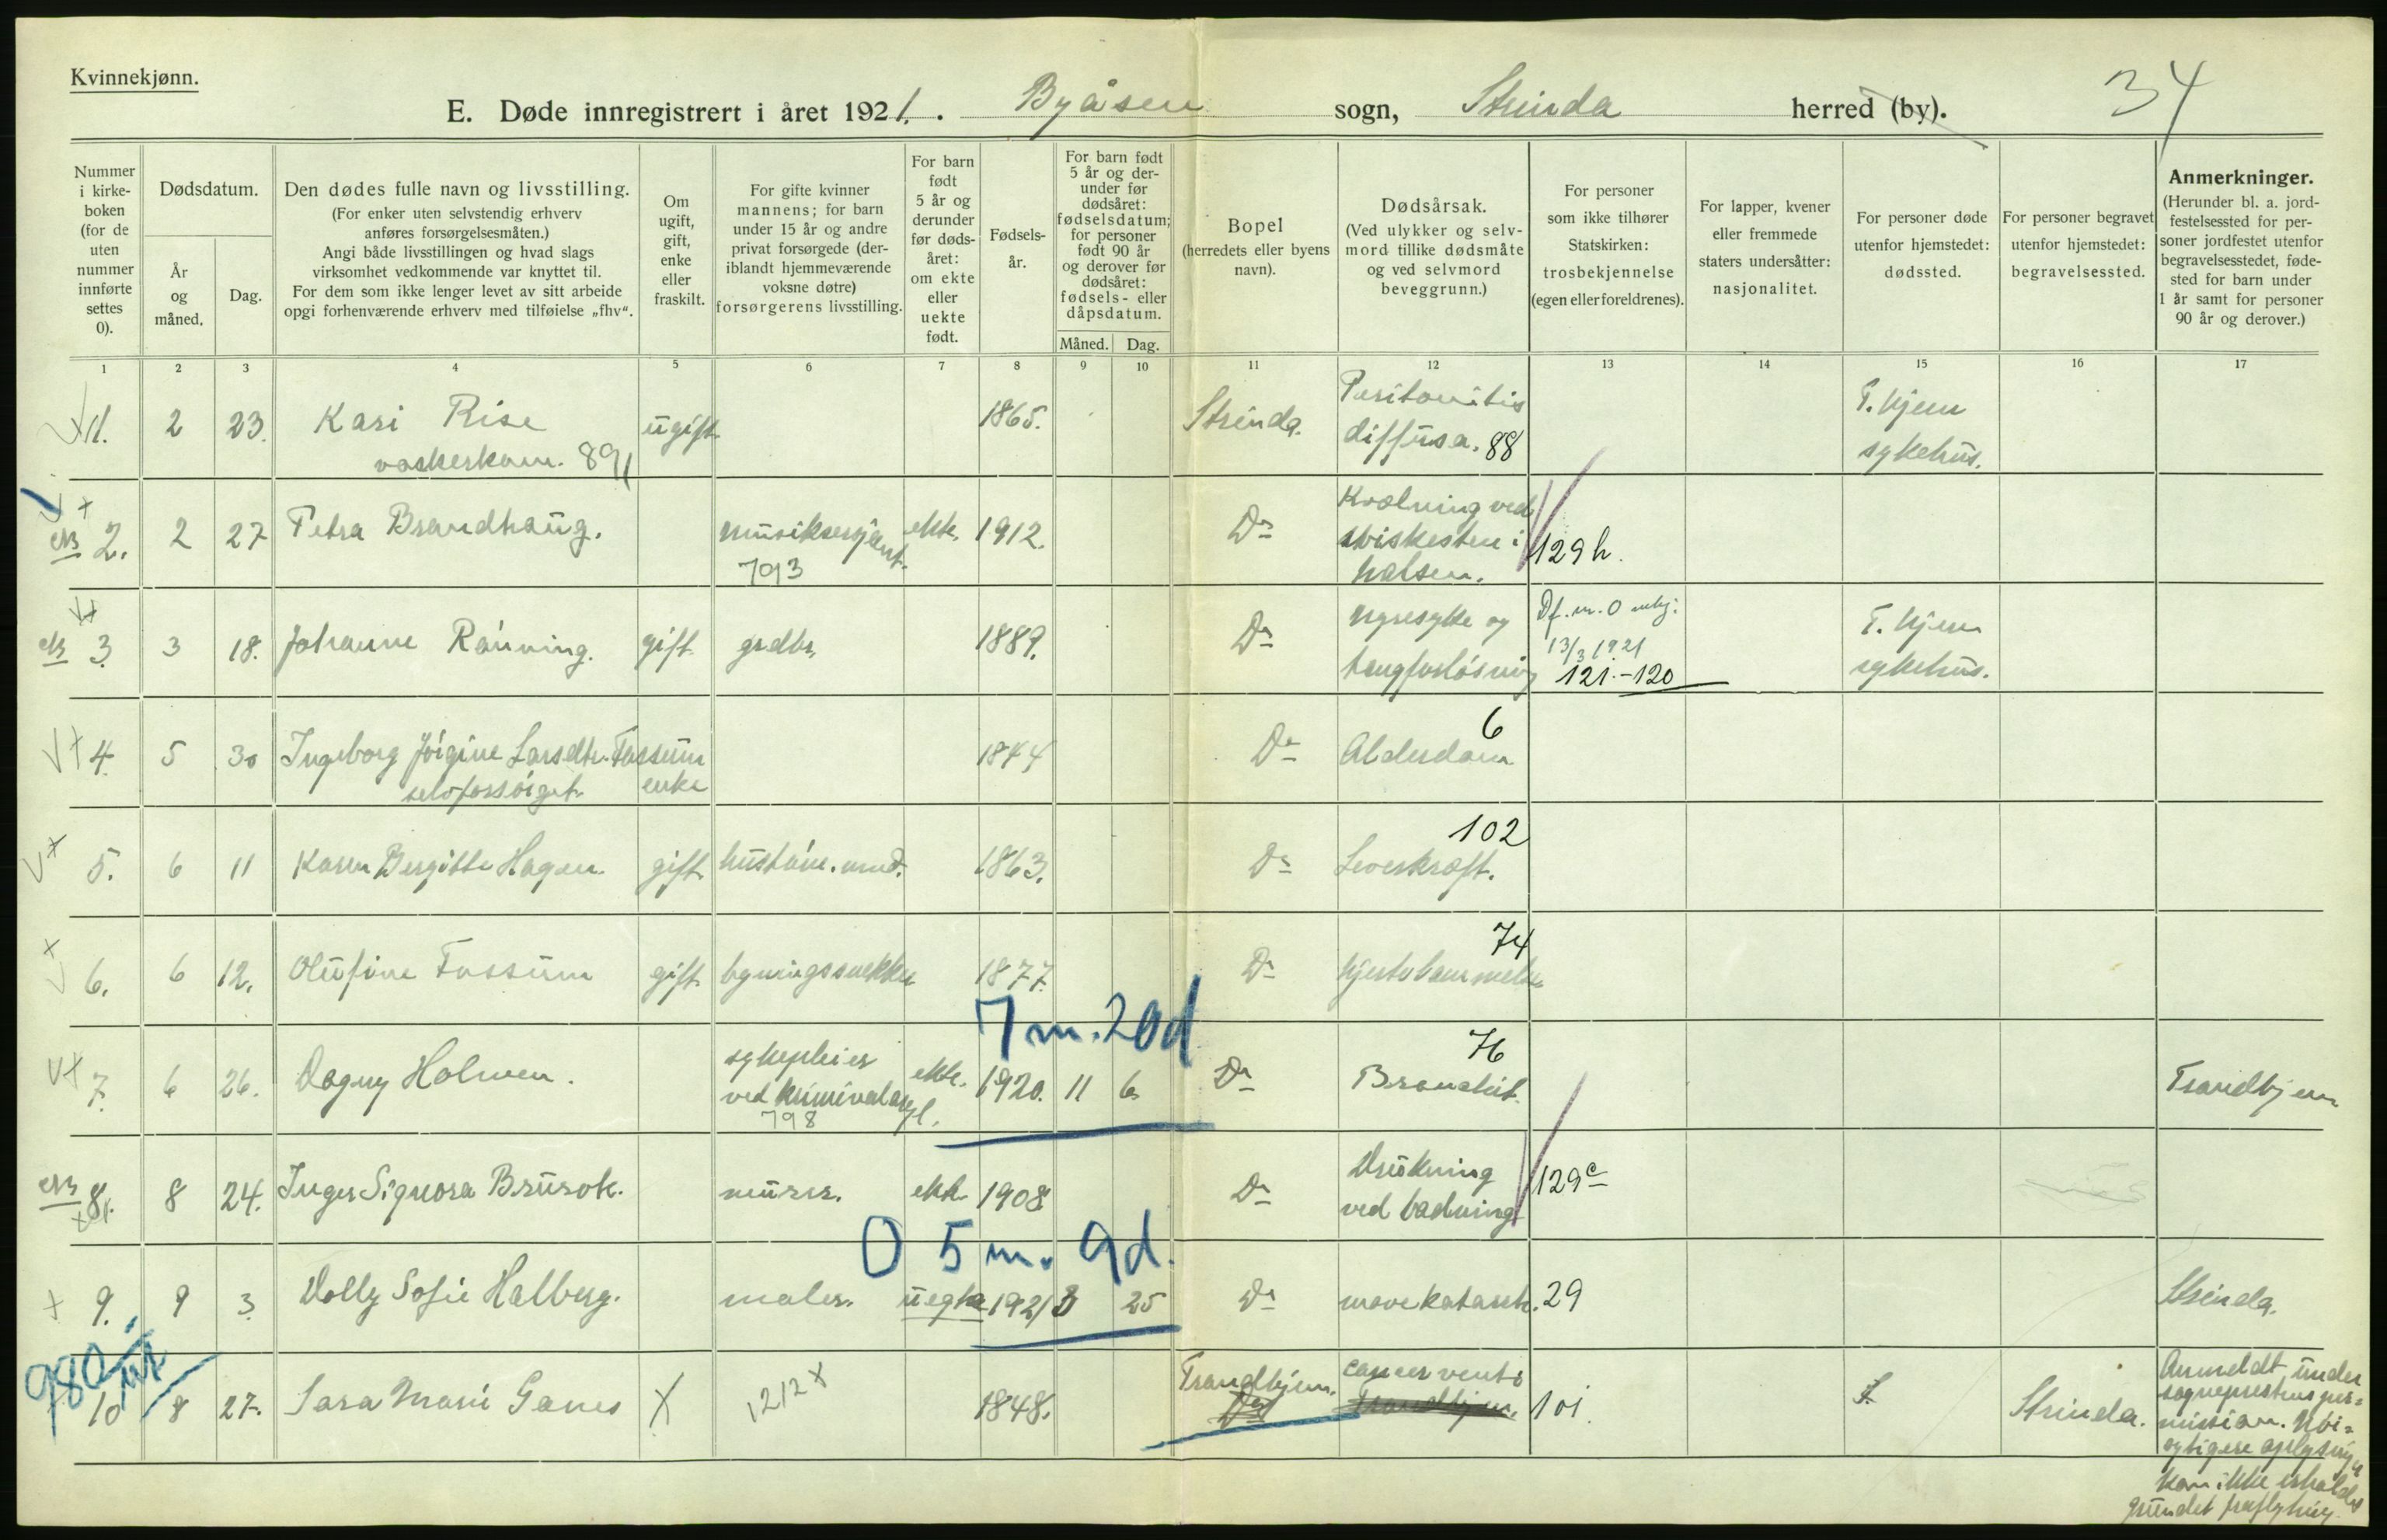 Kvinnekjønn.
34
E. Døde innregistrert i året 1921. Byåsen sogn, Strinda herred (by).
Nummer i kirke- boken (for de uten nummer innførte settes 0).
Dødsdatum.
År og måned.
Dag.
Den dødes fulle navn og livsstilling.
(For enker uten selvstendig erhverv anføres forsørgelsesmåten.)
Angi både livsstillingen og hvad slags virksomhet vedkommende var knyttet til.
For dem som ikke lenger levet av sitt arbeide opgi forhenværende erhverv med tilføielse „fhv“.
Om ugift, gift, enke eller fraskilt.
For gifte kvinner mannens; for barn under 15 år og andre privat forsørgede (der- iblandt hjemmeværende voksne døtre) forsørgerens livsstilling.
For barn født 5 år og derunder før døds- året: om ekte eller uekte født.
Fødsels- år.
For barn født 5 år og der- under før dødsåret: fødselsdatum; for personer født 90 år og derover før dødsåret: fødsels- eller dåpsdatum.
Måned. Dag.
Bopel (herredets eller byens navn).
Dødsårsak.
(Ved ulykker og selv- mord tillike dødsmåte og ved selvmord beveggrunn.)
For personer som ikke tilhører Statskirken: trosbekjennelse (egen eller foreldrenes).
For lapper, kvener eller fremmede staters undersåtter: nasjonalitet.
For personer døde utenfor hjemstedet: dødssted.
For personer begravet utenfor hjemstedet: begravelsessted.
Anmerkninger.
(Herunder bl. a. jord- festelsessted for per- soner jordfestet utenfor begravelsesstedet, føde- sted for barn under 1 år samt for personer 90 år og derover.)
1 2 3 4 5 6 7 8 9 10 11 12 13 14 15 16 17
1. 2 23. Kari Rise ugift 1865. Strinda. Peritonitis T.hjem
vaskerkone. 891 diffusa. 88 sykehus.
2. 2 27 Petra Brandhaug. musiksersjant. ekte. 1912. Do Kvælning ved
793 sviskesten i 129h.
halsen.
3. 3 18. Johanne Rønning. gift grdbr. 1889. Do Nyresyke og T. hjem
13/3 1921
tangforløsning 121.-120 sykehus.
4. 5 30 Ingeborg Jørgine Larsdtr. Fossum 1844 Do Alderdom 6
selvforsørget. enke
5. 6 11 Karen Bergitte Hagen gift 1863. Do Leverkræft. 102
6. 6 12. Olufine Fossum gift bygningssnekker 1877. Do hjertelammelse 74
7 m. 20d
7. 6 26. Dagny Holmen. sykepleier ved kriminalasyl. ekte. 1920. 11 6 Do Bronchit. 76 Trondhjem
798
8. 8 24. Inger Signora Brurok. murer. ekte 1908 Do Drukning
ved badning 129c
0 5 m. 9d.
9. 9 3 Dolly Sofie Halberg. maler. uegte 1921 3 25 Do mavekatarrh. 29 Strinda.
980
10 8 27. Sara Marie Ganes X 1212 X 1848. Trondhjem. cancer ventr. 101. Strinda.
Anmeldt under
sogneprestens per=
mission. Nøi=
agtigere oplysning
kan ikke erholdes
grundet fraflytning.